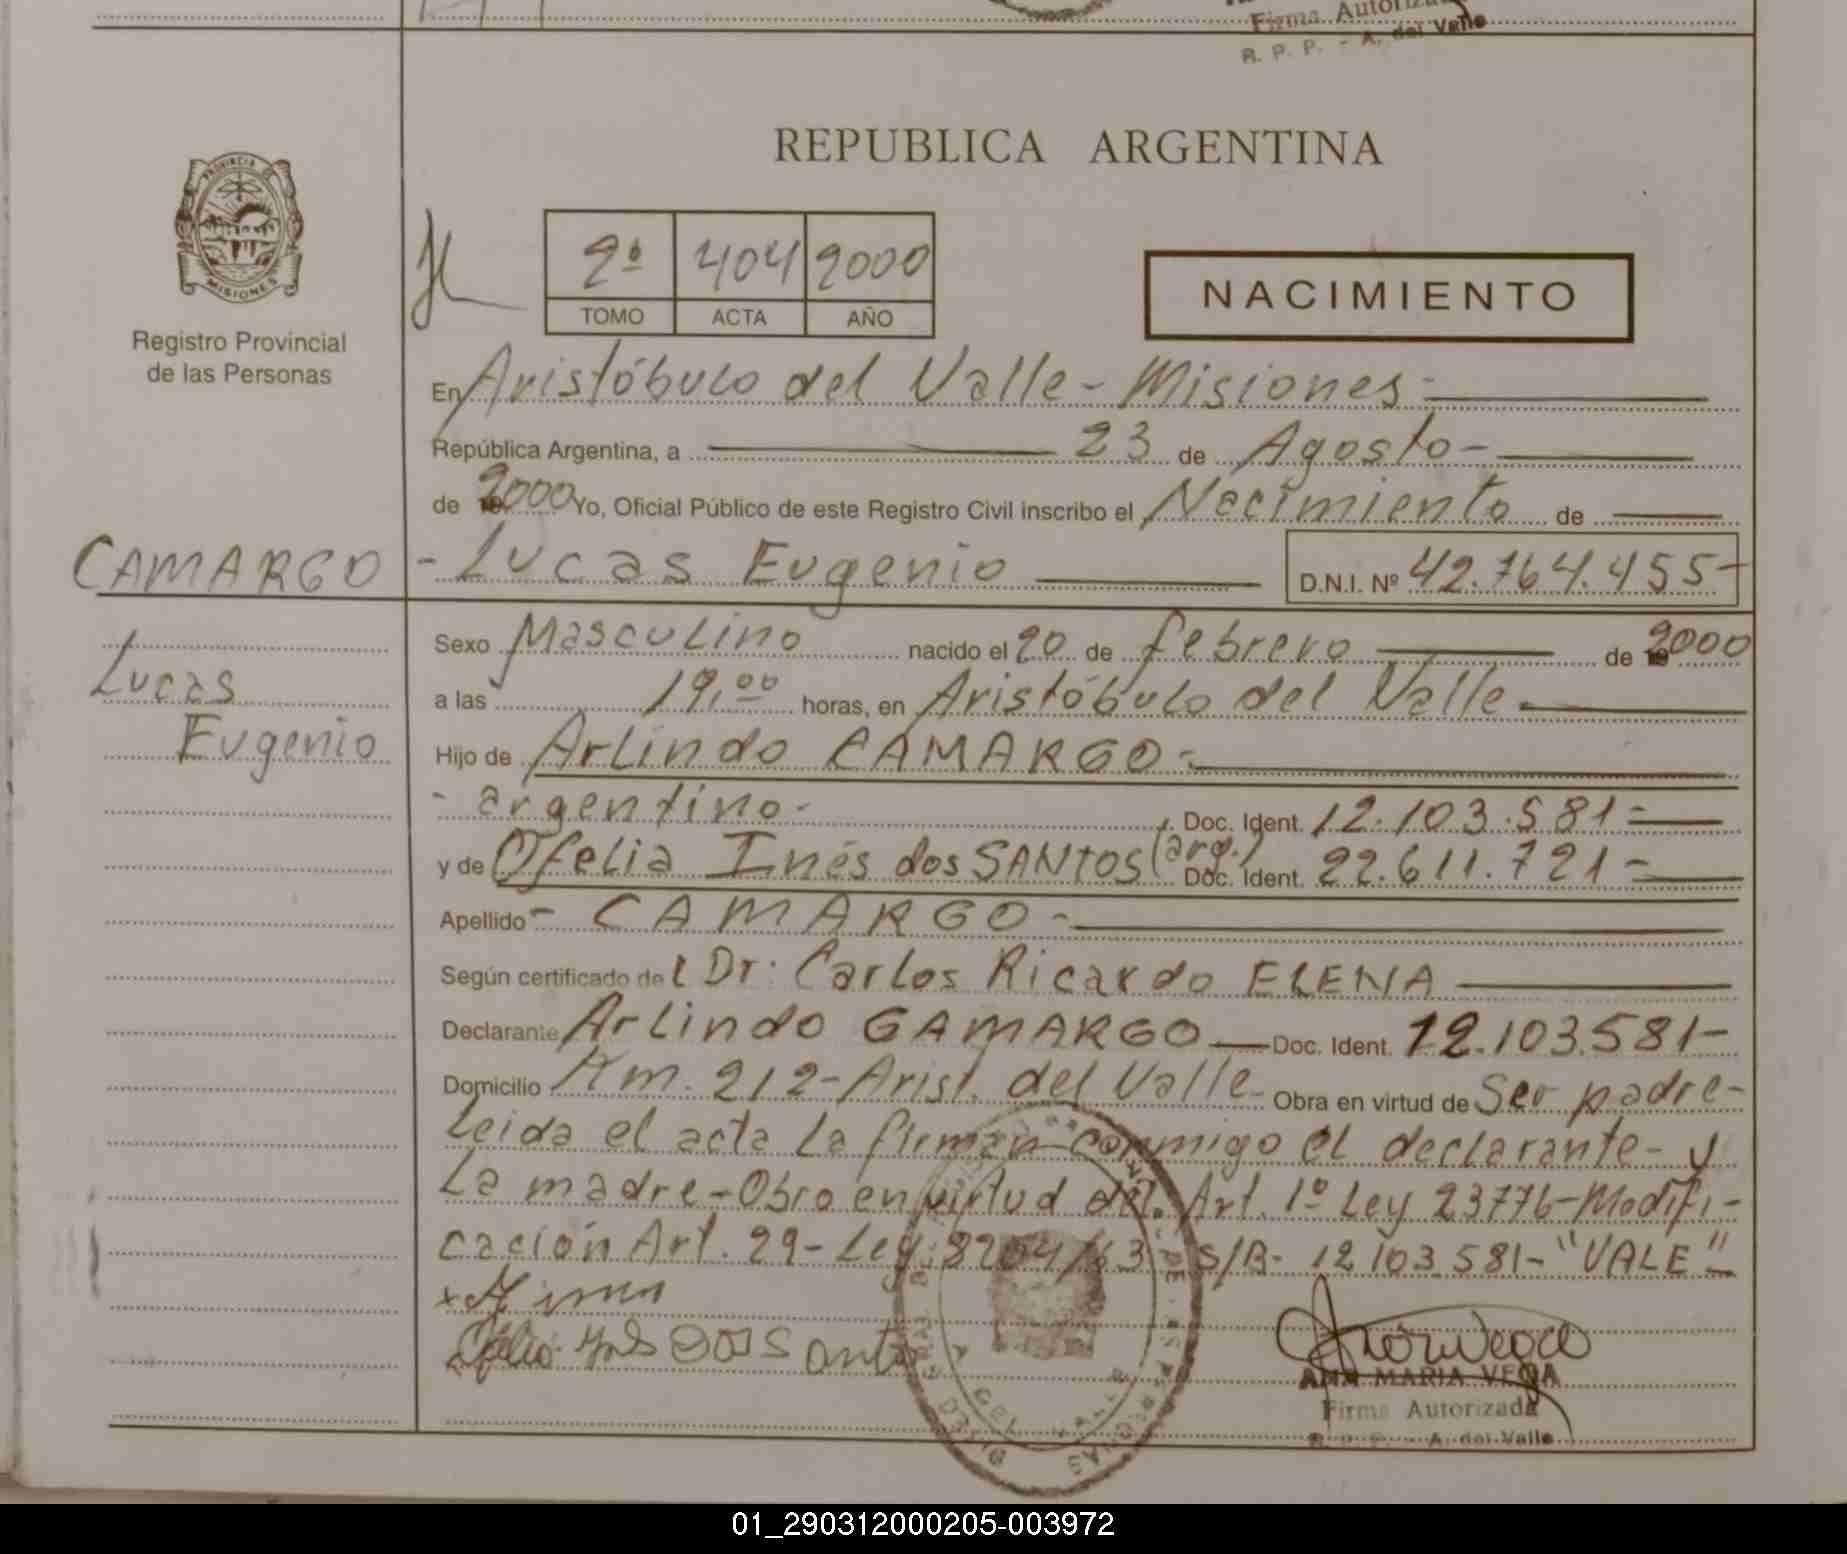 Firma Autoriza
R. P. P. - A. del Valle
REPUBLICA ARGENTINA
PROVINCIA DE
MISIONES
Registro Provincial
de las Personas
2º 404 2000
TOMO ACTA AÑO
NACIMIENTO
En Aristóbulo del Valle - Misiones -
República Argentina, a 23 de Agosto -
de 2000 Yo, Oficial Público de este Registro Civil inscribo el Nacimiento de
CAMARGO - Lucas Eugenio D.N.I. Nº 42.764.455-
Lucas
Eugenio
Sexo Masculino nacido el 20 de febrero de 2000
a las 19,00 horas, en Aristóbulo del Valle
Hijo de Arlindo CAMARGO -
- argentino - Doc. Ident. 12.103.581 -
y de Ofelia Inés dos SANTOS (arg.) Doc. Ident. 22.611.721 -
Apellido - CAMARGO -
Según certificado del Dr: Carlos Ricardo ELENA
Declarante Arlindo CAMARGO Doc. Ident. 12.103.581-
Domicilio Km. 212 - Arist. del Valle Obra en virtud de Ser padre -
Leida el acta la firman conmigo el declarante - y
La madre - Obro en virtud del Art. 1º Ley 23776 - Modifi-
cación Art. 29 - Ley: 8204/63 S/B- 12.103.581 - "VALE" -
DOS Santo
ANA MARIA VEGA
Firma Autorizada
R. P. P. - A. del Valle
01_290312000205-003972